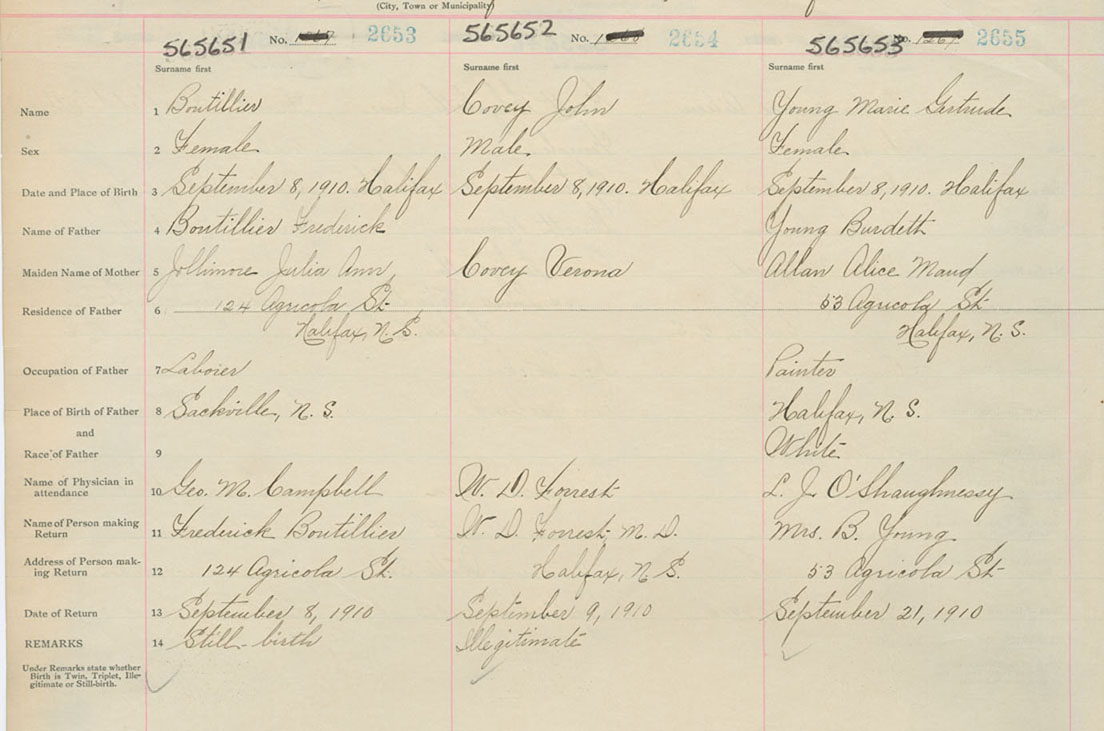 (City, Town or Municipality)
565651 No. 2653 565652 No. 2654 565653 No. 2655
Surname first Surname first Surname first
Name 1 Boutillier Covey John Young Marie Gertrude
Sex 2 Female Male Female
Date and Place of Birth 3 September 8, 1910. Halifax September 8, 1910. Halifax September 8, 1910. Halifax
Name of Father 4 Boutillier Frederick Young Burdett
Maiden Name of Mother 5 Jollimore Julia Ann Covey Verona Allan Alice Maud
Residence of Father 6 124 Agricola St. 53 Agricola St
Halifax, N. S. Halifax, N. S.
Occupation of Father 7 Laborer Painter
Place of Birth of Father 8 Sackville, N. S. Halifax, N. S.
and
Race of Father 9 White
Name of Physician in attendance 10 Geo. M. Campbell W. D. Forrest L. J. O'Shaughnessy
Name of Person making Return 11 Frederick Boutillier W. D. Forrest, M. D. Mrs. B. Young
Address of Person making Return 12 124 Agricola St. Halifax, N S. 53 Agricola St
Date of Return 13 September 8, 1910 September 9, 1910 September 21, 1910
REMARKS 14 Still-birth Illegitimate
Under Remarks state whether
Birth is Twin, Triplet, Ille-
gitimate or Still-birth.